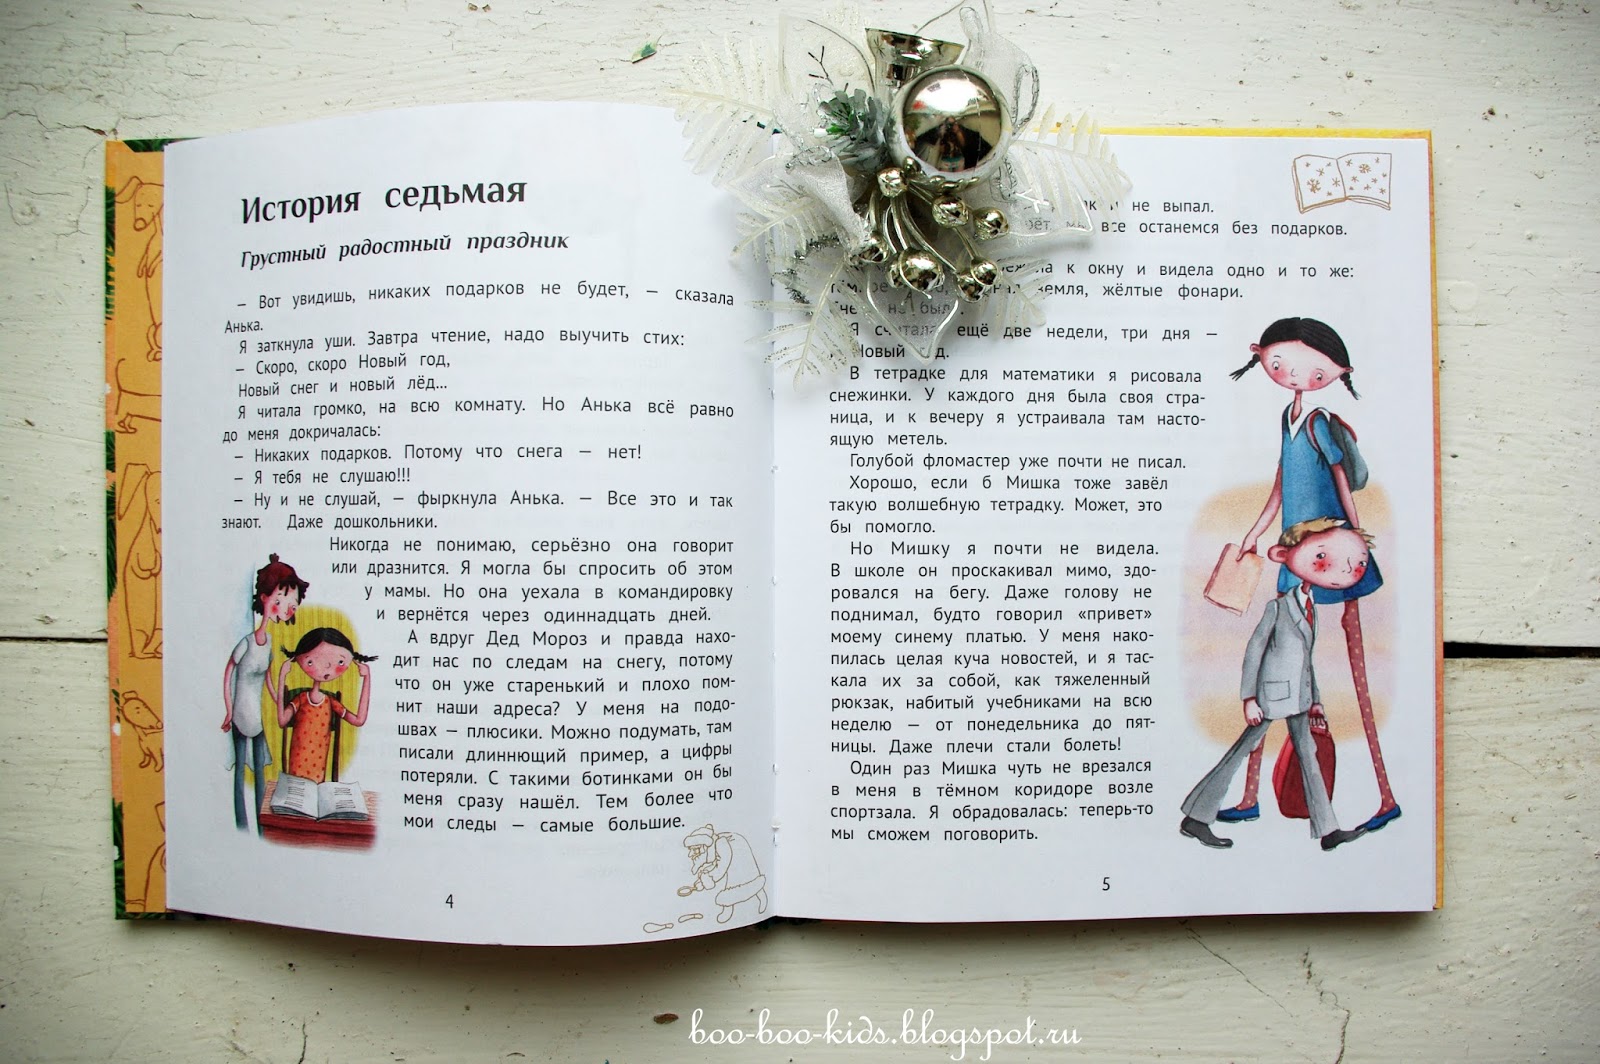 История седьмая
Грустный радостный праздник
– Вот увидишь, никаких подарков не будет, – сказала
Анька.
Я заткнула уши. Завтра чтение, надо выучить стих:
– Скоро, скоро Новый год,
Новый снег и новый лёд...
Я читала громко, на всю комнату. Но Анька всё равно
до меня докричалась:
– Никаких подарков. Потому что снега – нет!
– Я тебя не слушаю!!!
– Ну и не слушай, – фыркнула Анька. – Все это и так
знают. Даже дошкольники.
Никогда не понимаю, серьёзно она говорит
или дразнится. Я могла бы спросить об этом
у мамы. Но она уехала в командировку
и вернётся через одиннадцать дней.
А вдруг Дед Мороз и правда нахо-
дит нас по следам на снегу, потому
что он уже старенький и плохо пом-
нит наши адреса? У меня на подо-
швах – плюсики. Можно подумать, там
писали длиннющий пример, а цифры
потеряли. С такими ботинками он бы
меня сразу нашёл. Тем более что
мои следы – самые большие.
4
не выпал.
все останемся без подарков.
к окну и видела одно и то же:
земля, жёлтые фонари.
Я считала: ещё две недели, три дня –
Новый
В тетрадке для математики я рисовала
снежинки. У каждого дня была своя стра-
ница, и к вечеру я устраивала там насто-
ящую метель.
Голубой фломастер уже почти не писал.
Хорошо, если б Мишка тоже завёл
такую волшебную тетрадку. Может, это
бы помогло.
Но Мишку я почти не видела.
В школе он проскакивал мимо, здо-
ровался на бегу. Даже голову не
поднимал, будто говорил «привет»
моему синему платью. У меня нако-
пилась целая куча новостей, и я тас-
кала их за собой, как тяжеленный
рюкзак, набитый учебниками на всю
неделю – от понедельника до пят-
ницы. Даже плечи стали болеть!
Один раз Мишка чуть не врезался
в меня в тёмном коридоре возле
спортзала. Я обрадовалась: теперь-то
мы сможем поговорить.
5
boo-boo-kids.blogspot.ru